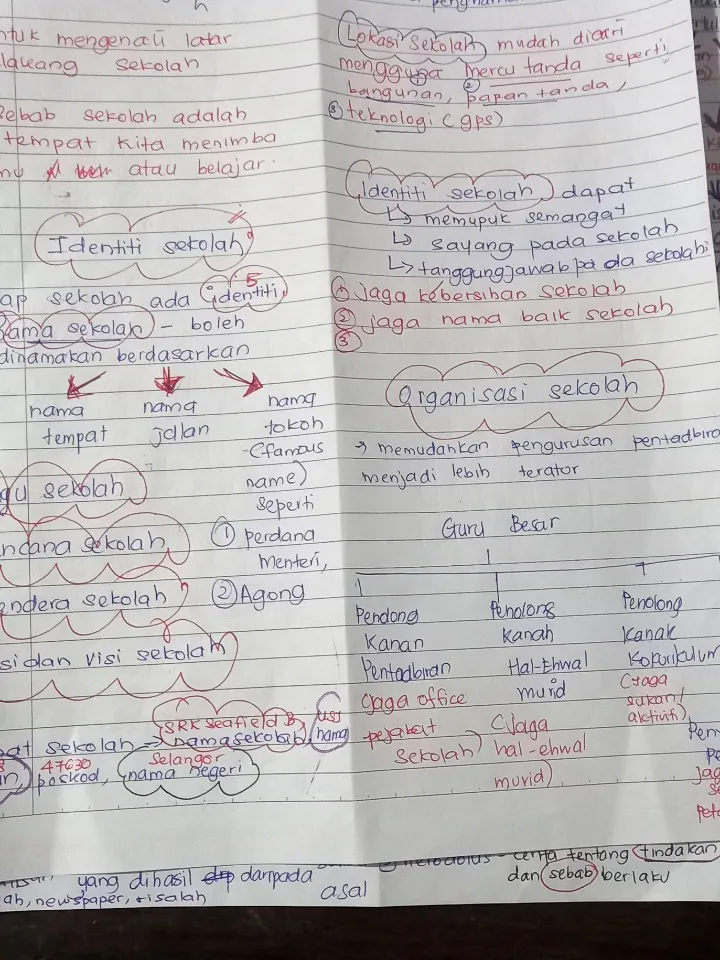 mengenali latar
sekolah
Sebab sekolah adalah
tempat kita menimba
atau belajar.
Identiti sekolah
sekolah ada identiti 5
Nama sekolah - boleh
dinamakan berdasarkan
nama nama nama
tempat jalan tokoh
(famous
name)
seperti
① perdana
menteri,
② Agong
sekolah
sekolah
sekolah
dan visi sekolah
SRK Seafield B, USJ
sekolah → nama sekolah, nama
47630 Selangor
poskod, nama negeri
Lokasi sekolah mudah dicari
mengguna mercu tanda seperti
① bangunan, ② papan tanda,
③ teknologi (gps)
Identiti sekolah dapat
↳ memupuk semangat
↳ sayang pada sekolah
↳ tanggungjawab pada sekolah
① Jaga kebersihan sekolah
② jaga nama baik sekolah
③
Organisasi sekolah
→ memudahkan pengurusan
menjadi lebih terator
Guru Besar
Penolong Penolong Penolong
Kanan kanan kanak
Pentadbiran Hal-Ehwal Kokurikulum
murid
(jaga office
pejabat
sekolah)
(Jaga
hal-ehwal
murid)
(Jaga
sukan/
aktiviti)
yang dihasil daripada
newspaper, risalah
asal
cerita tentang tindakan
dan sebab berlaku